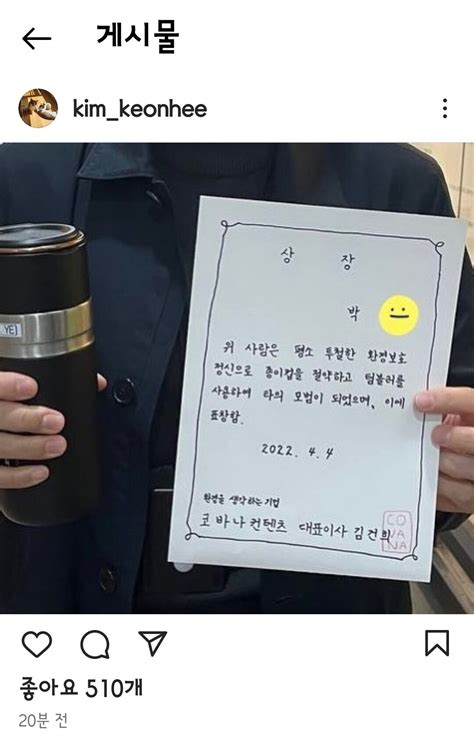 게시물
kim_keonhee
상 장
박
위 사람은 평소 투철한 환경보호
정신으로 종이컵을 절약하고 텀블러를
사용하여 타의 모범이 되었으며, 이에
표창함.
2022. 4. 4
환경을 생각하는 기업
코바나컨텐츠 대표이사 김건희
CO
VA
NA
YE
좋아요 510개
20분 전